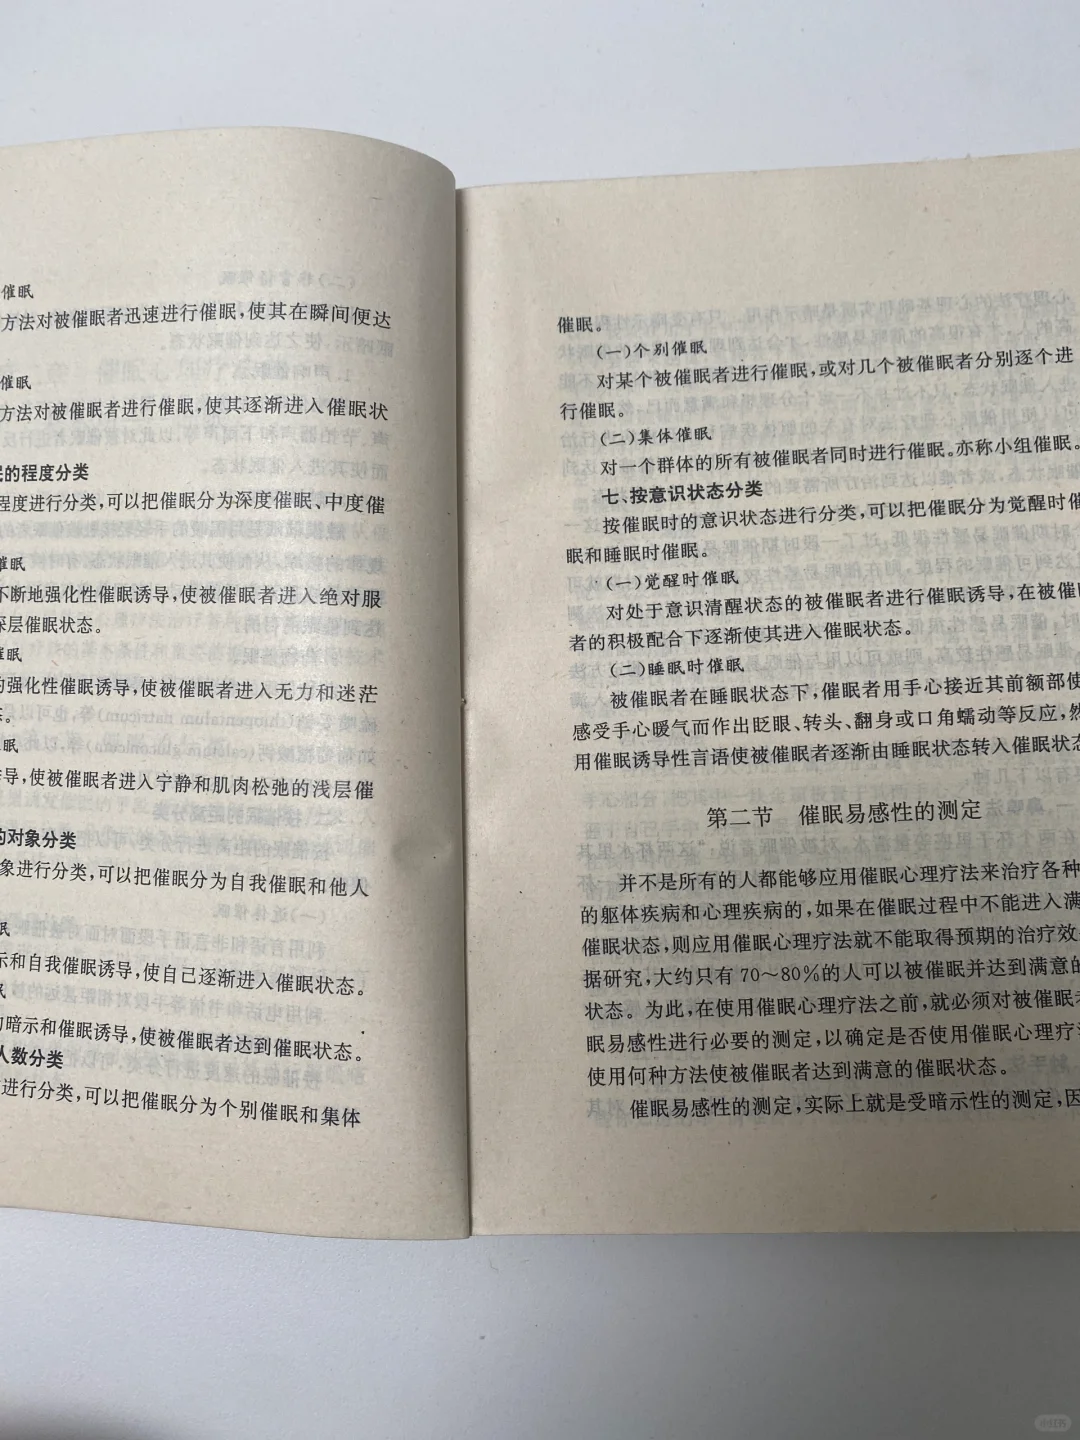 催眠
方法对被催眠者迅速进行催眠,使其在瞬间便达
催眠
方法对被催眠者进行催眠,使其逐渐进入催眠状
民的程度分类
程度进行分类,可以把催眠分为深度催眠、中度催
催眠
不断地强化性催眠诱导,使被催眠者进入绝对服
深层催眠状态。
催眠
的强化性催眠诱导,使被催眠者进入无力和迷茫
眠
导,使被催眠者进入宁静和肌肉松弛的浅层催
的对象分类
象进行分类,可以把催眠分为自我催眠和他人
眠
示和自我催眠诱导,使自己逐渐进入催眠状态。
的暗示和催眠诱导,使被催眠者达到催眠状态。
人数分类
进行分类,可以把催眠分为个别催眠和集体
催眠。
(一)个别催眠
对某个被催眠者进行催眠,或对几个被催眠者分别逐个进
行催眠。
(二)集体催眠
对一个群体的所有被催眠者同时进行催眠。亦称小组催眠。
七、按意识状态分类
按催眠时的意识状态进行分类,可以把催眠分为觉醒时催
眠和睡眠时催眠。
(一)觉醒时催眠
对处于意识清醒状态的被催眠者进行催眠诱导,在被催
者的积极配合下逐渐使其进入催眠状态。
(二)睡眠时催眠
被催眠者在睡眠状态下,催眠者用手心接近其前额部使
感受手心暖气而作出眨眼、转头、翻身或口角蠕动等反应,然
用催眠诱导性言语使被催眠者逐渐由睡眠状态转入催眠状态
第二节 催眠易感性的测定
并不是所有的人都能够应用催眠心理疗法来治疗各种
的躯体疾病和心理疾病的,如果在催眠过程中不能进入满
催眠状态,则应用催眠心理疗法就不能取得预期的治疗效
据研究,大约只有70~80%的人可以被催眠并达到满意的
状态。为此,在使用催眠心理疗法之前,就必须对被催眠者
眠易感性进行必要的测定,以确定是否使用催眠心理疗法
使用何种方法使被催眠者达到满意的催眠状态。
催眠易感性的测定,实际上就是受暗示性的测定,因